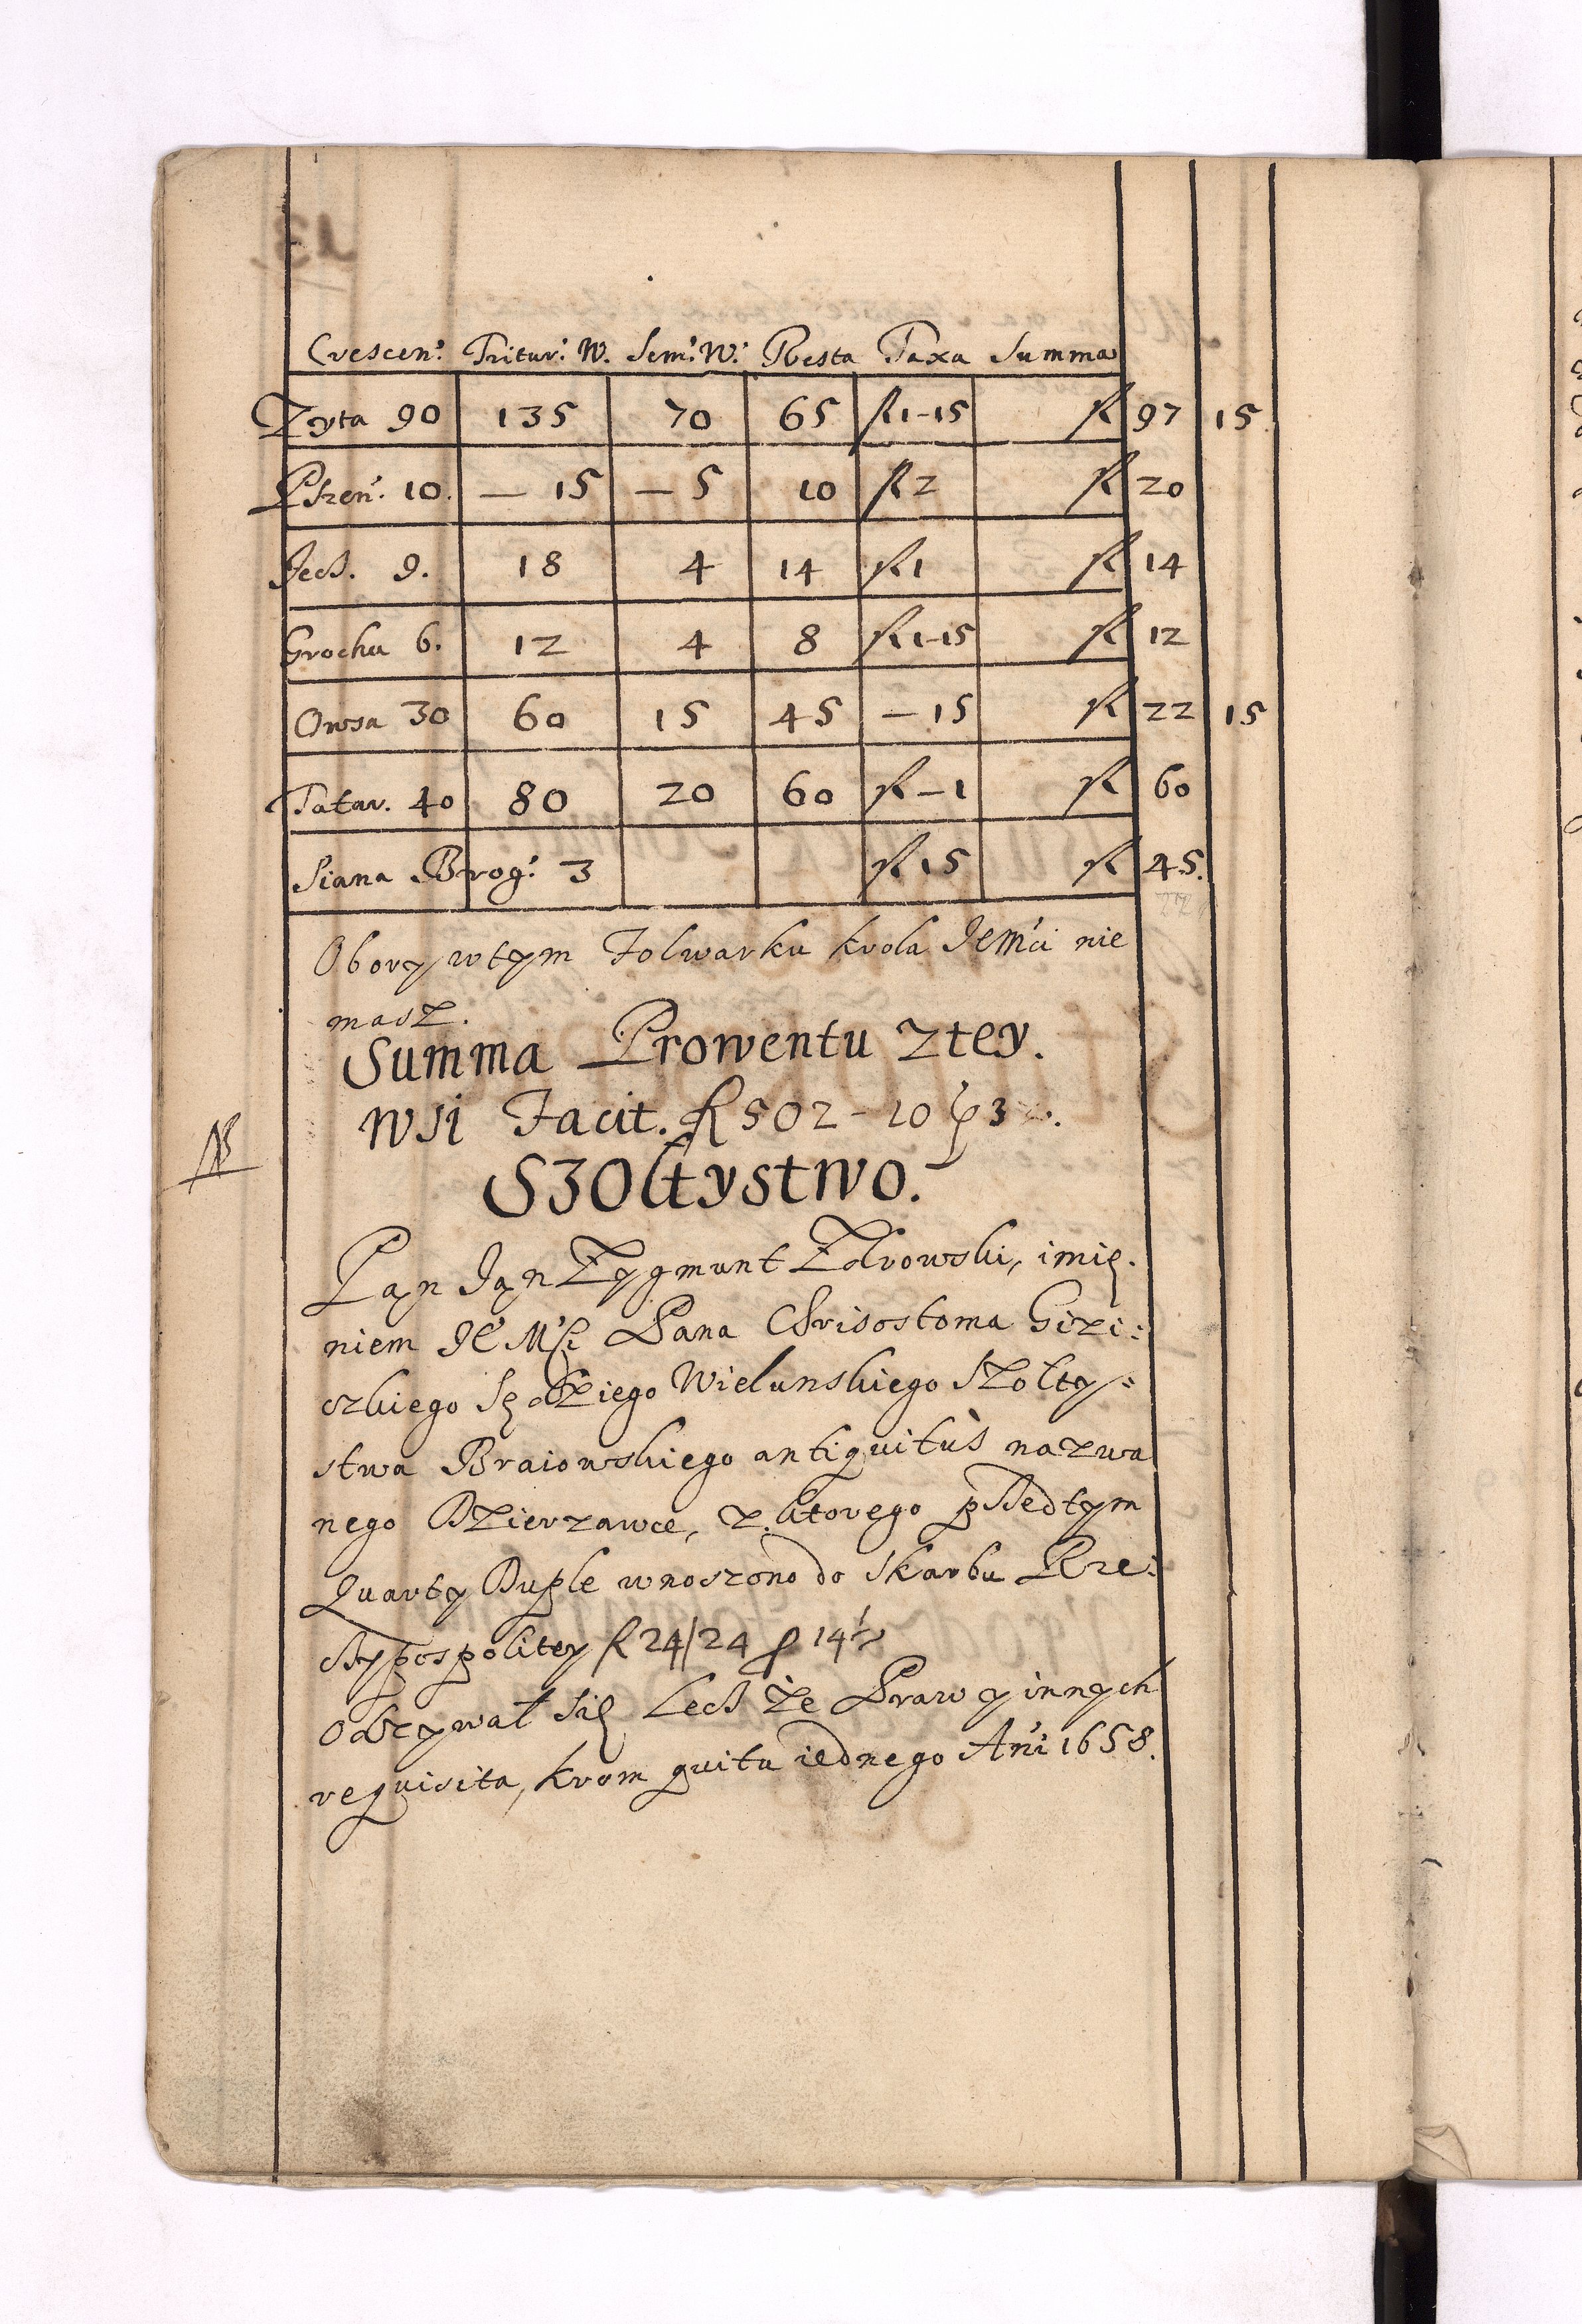 Crescen: Tritur: W. Sem: W: Resta Taxa Summa
Zyta 90 135 70 65 fl 1-15 fl 97 15
Pszen: 10. — 15 — 5 10 fl 2 fl 20
Jecz. 9. 18 4 14 fl 1 fl 14
Grochu 6. 12 4 8 fl 1-15 fl 12
Owsa 30 60 15 45 — 15 fl 22 15
Tatar. 40 80 20 60 fl — 1 fl 60
Siana Brog: 3 fl 15 fl 45.
Obory w tym Folwarku krola Jem'ci nie
masz.
Summa Prowentu z tey.
wsi Facit. fl 502 - 10
NB
SZOłtystwo.
Pan Jan Zygmunt Zdrowski, imie.
niem Je' Mści Pana Chrisostoma Gizi:
ckiego Sędziego Wielunskiego Szołty:
stwa Braiowskiego antiquitùs nazwa
nego Dzierzawce, z ktorego przedtym
Quarty Duple wnoszono do Skarbu Rze:
czypospolitey fl 24/24
Odzywał się Lecz że Praw y innych
requisita, krom quitu iednego An'i 1658.